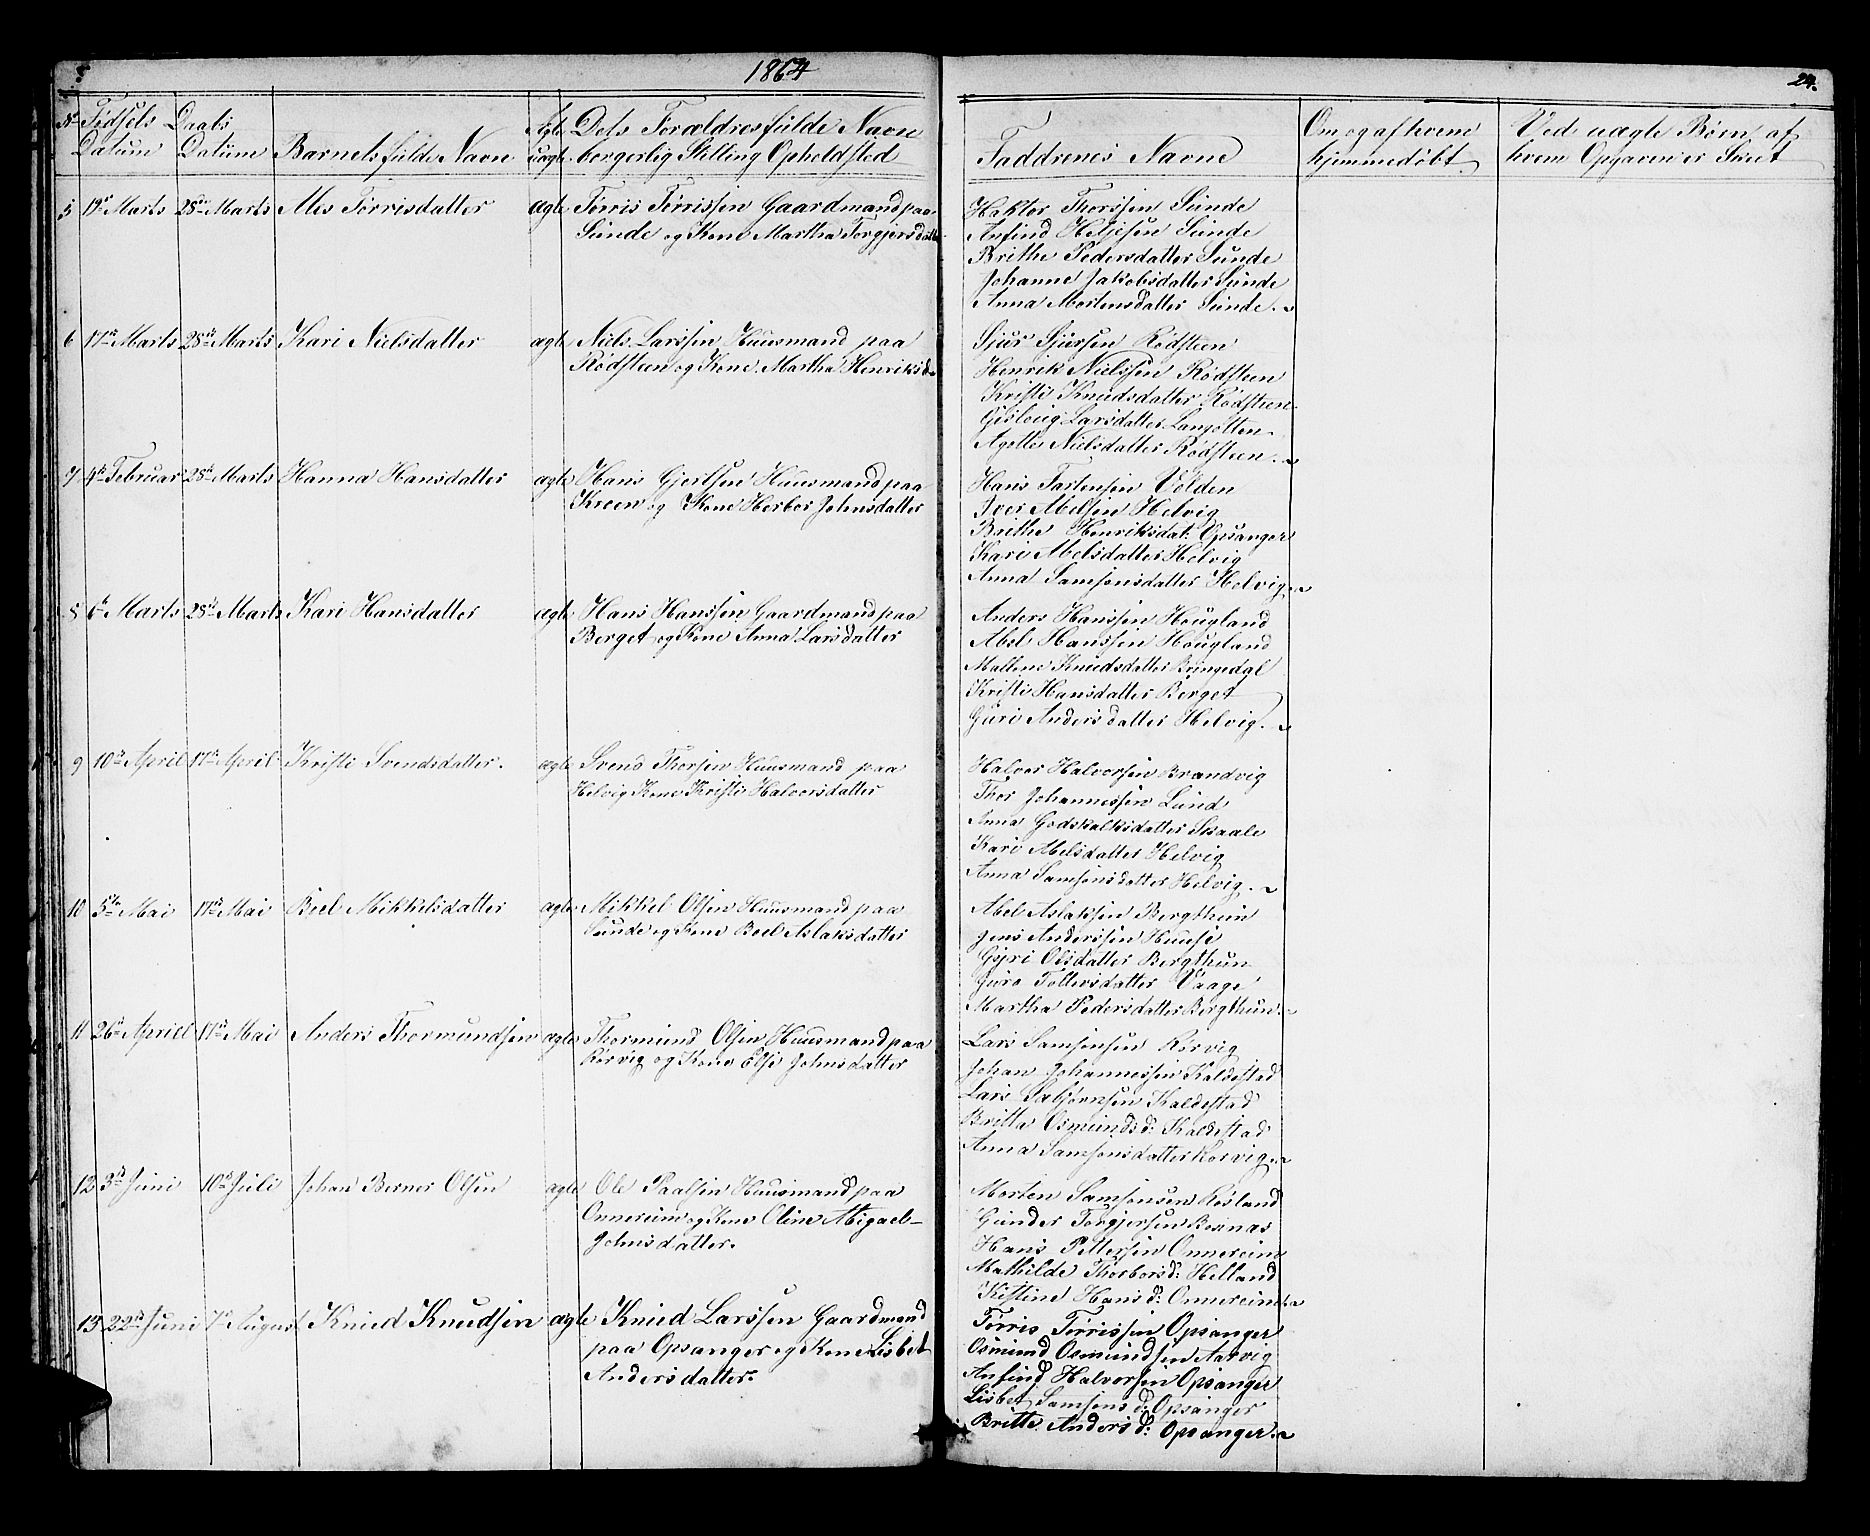 1864
24.
No Fødsels Datum
Daabs Datum
Barnets fulde Navn
Ægte uægte
Dets Forældres fulde Navn
borgerlig Stilling Opholdsted
Faddrenes Navne
Om og af hvem
hjemmedøbt
Ved uægte Børn, af
hvem Opgaven er Skeet
5 19de Marts 28de Marts Mes Tørrisdatter ægte Tørris Tørrissen Gaardmand paa
Sunde og Kone Martha Torgjersdatter
Haktor Thorssen Sunde
Anfind Heljesen Sunde
Brithe Pedersdatter Sunde
Johanne Jakobsdatter Sunde
Anna Mortensdatter Sunde.
6 17de Marts 28de Marts Kari Nielsdatter ægte Niels Larssen Huusmand paa
Rødsteen og Kone Martha Henriksd
Sjur Sjursen Rødsteen
Henrik Nielssen Rødsteen
Kristi Knudsdatter Rødsteen
Gisloug Larsdatter
Agotte Nielsdatter Rødsteen.
7 4de Februar 28de Marts Hanna Hansdatter ægte Hans Gjertsen Huusmand paa
Kroen og Kone Herbor Johnsdatter
Hans Tostensen Volden
Iver Abelsen Helvig
Brithe Henriksdat: Opsanger
Kari Abelsdatter Helvig
Anna Samsonsdatter Helvig.
8 6te Marts 28de Marts Kari Hansdatter ægte Hans Hanssen Gaardmand paa
Berget og Kone Anna Larsdatter
Anders Hanssen Hougland
Abel Hanssen Hougland
Mallene Knudsdatter Bringedal
Kristi Hansdatter Berget
Guri Andersdatter Helvig.
9 10de April 17de April Kristi Svendsdatter. ægte Svend Thorsen Huusmand paa
Helvig Kone Kristi Halvorsdatter
Halvor Halvorsen Brandvig
Thor Johannessen Lund
Anna Godskalksdatter Skaale
Kari Abelsdatter Helvig
Anna Samsonsdatter Helvig.
10 5te Mai 17de Mai Beel Mikkelsdatter ægte Mikkel Olsen Huusmand paa
Sunde og Kone Beel Aslaksdatter
Abel Aslaksen Bergthun
Jens Anderssen Huuse
Gyri Olsdatter Bergthun
Guro Tollersdatter Vaage
Martha Pedersdatter Bergthun.
11 26de April 17de Mai Anders Thormundsen ægte Thormund Olsen Huusmand paa
Rørvig og Kone Elsi Johnsdatter
Lars Samsonsen Rørvig
Johan Johannessen Kaldestad
Lars Asbjørnsen Kaldestad
Britta Osmundsd: Kaldestad
Anna Samsonsdatter Rørvig.
12 3de Juni 10de Juli Johan Berner Olsen ægte Ole Paalsen Huusmand paa
Onnereim og Kone Oline Abigael
Johnsdatter.
Morten Samsonsen Røsland
Gunder Torgjersen Bosnæs
Hans Pettersen Onnereim
Mathilde Thorborsd: Helland
Kistine Hansd: Onnereim.
13 22de Juni 7de August Knud Knudsen ægte Knud Larssen Gaardmand
paa Opsanger og Kone Lisbet
Andersdatter.
Tørris Tørrissen Opsanger
Osmund Osmundsen Aarvig
Anfind Halvorsen Opsanger
Lisbet Samsonsd: Opsanger
Britte Andersd: Opsanger.